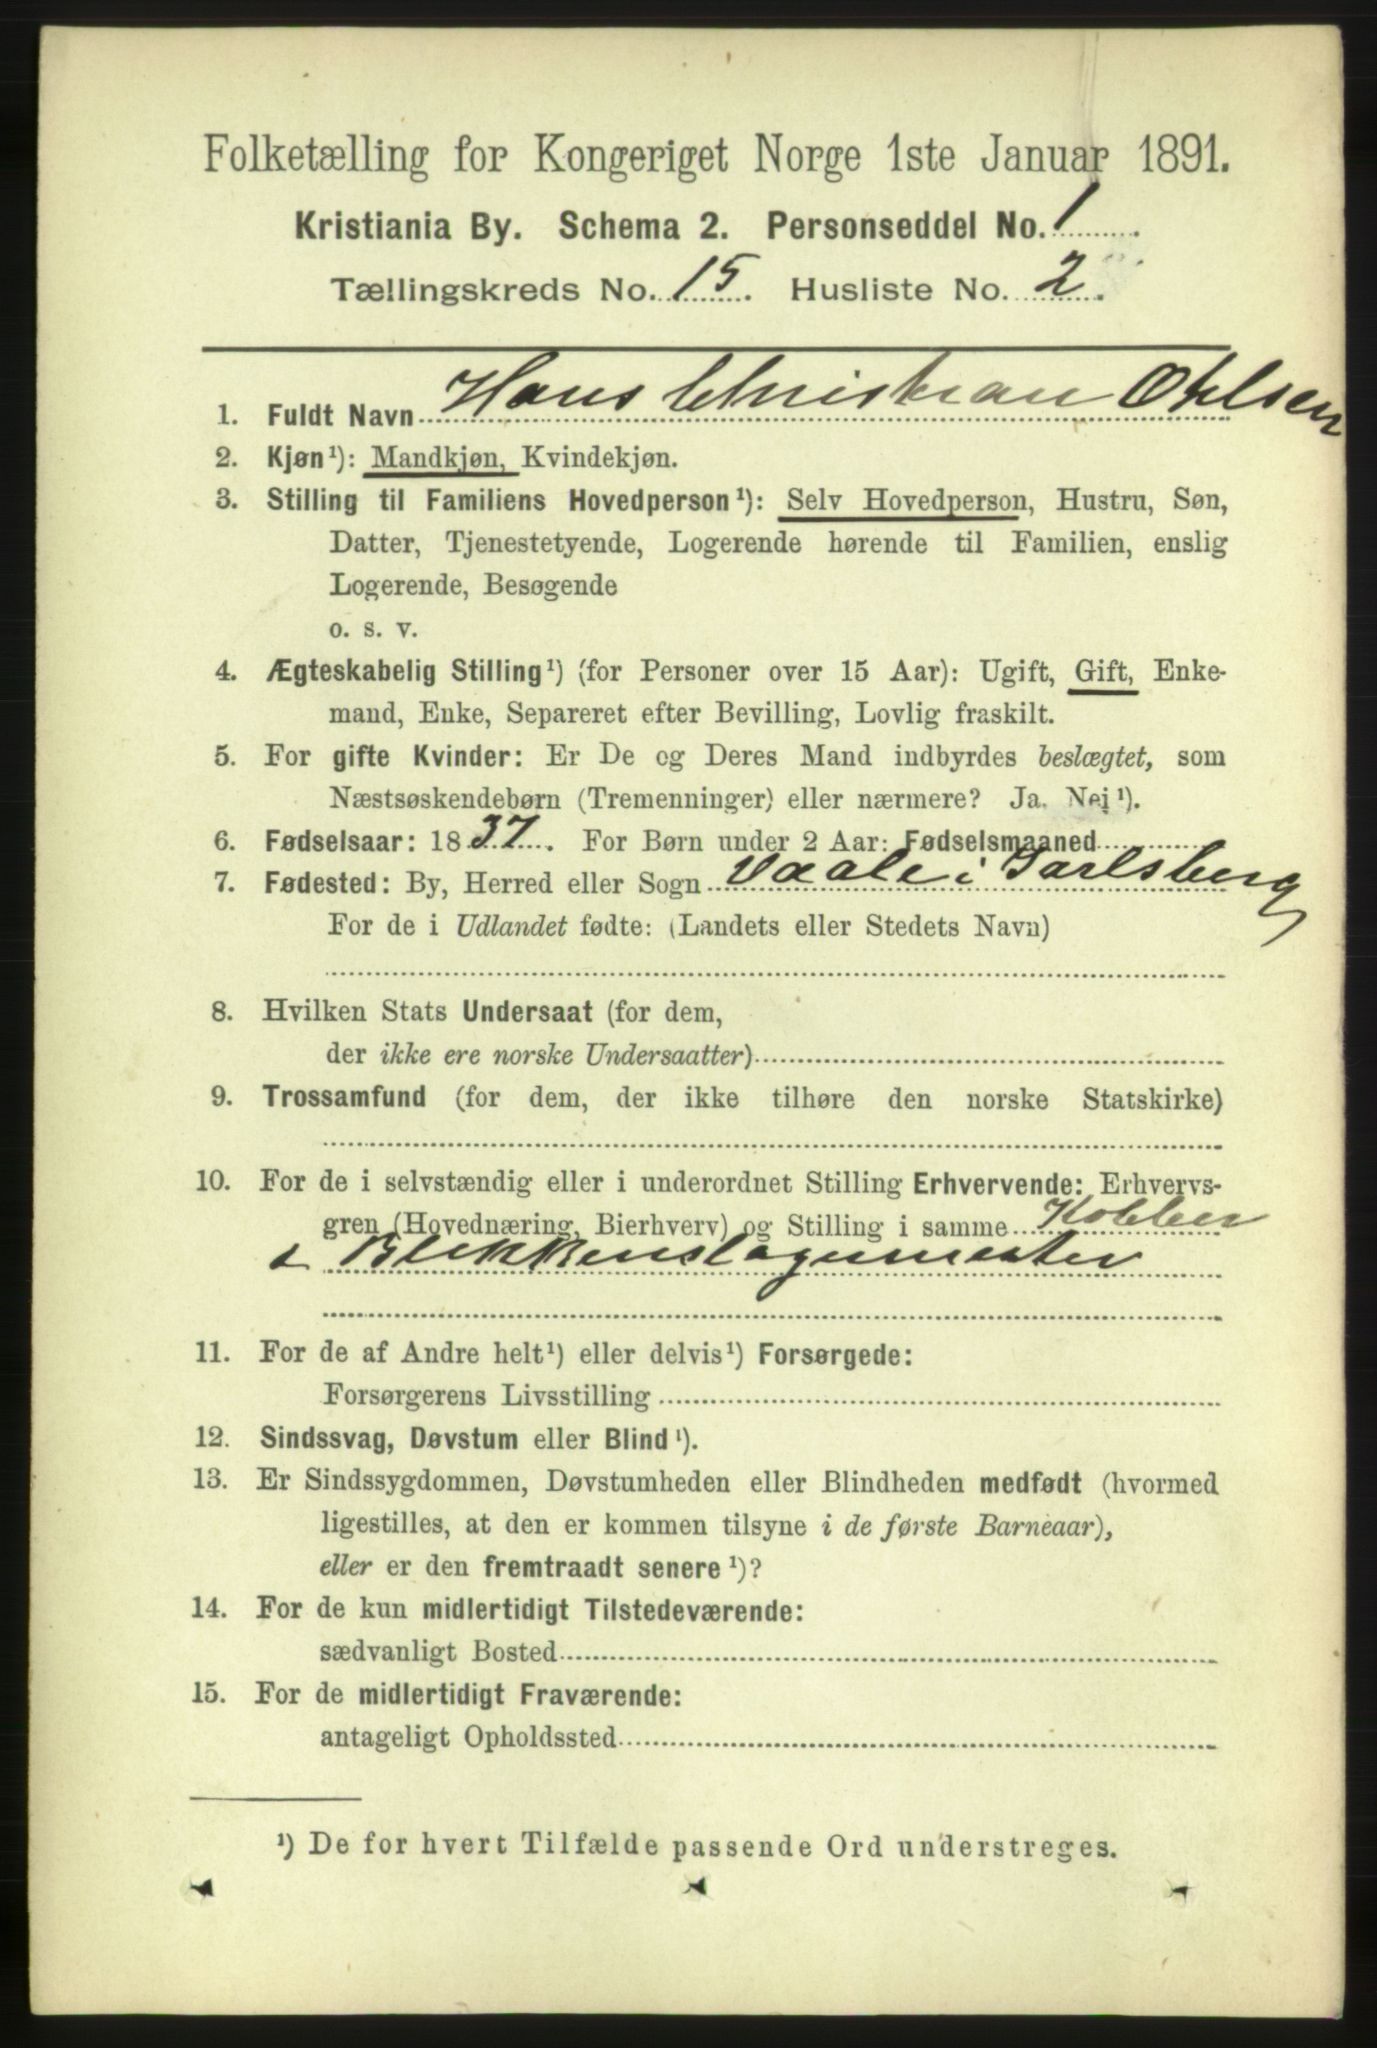 Folketælling for Kongeriget Norge 1ste Januar 1891.
Kristiania By. Schema 2. Personseddel No. 1
Tællingskreds No. 15. Husliste No. 2.
1. Fuldt Navn Hans Christian Ohlsen
2. Kjøn¹): Mandkjøn, Kvindekjøn.
3. Stilling til Familiens Hovedperson¹): Selv Hovedperson, Hustru, Søn,
Datter, Tjenestetyende, Logerende hørende til Familien, enslig
Logerende, Besøgende
o. s. v.
4. Ægteskabelig Stilling¹) (for Personer over 15 Aar): Ugift, Gift, Enke-
mand, Enke, Separeret efter Bevilling, Lovlig fraskilt.
5. For gifte Kvinder: Er De og Deres Mand indbyrdes beslægtet, som
Næstsøskendebørn (Tremenninger) eller nærmere? Ja. Nei¹).
6. Fødselsaar: 1837. For Børn under 2 Aar: Fødselsmaaned
7. Fødested: By, Herred eller Sogn Vaale i Jarlsberg
For de i Udlandet fødte: (Landets eller Stedets Navn)
8. Hvilken Stats Undersaat (for dem,
der ikke ere norske Undersaatter)
9. Trossamfund (for dem, der ikke tilhøre den norske Statskirke)
10. For de i selvstændig eller i underordnet Stilling Erhvervende: Erhvervs-
gren (Hovednæring, Bierhverv) og Stilling i samme Kobber
& Blikkenslagermester
11. For de af Andre helt¹) eller delvis¹) Forsørgede:
Forsørgerens Livsstilling
12. Sindssvag, Døvstum eller Blind¹).
13. Er Sindssygdommen, Døvstumheden eller Blindheden medfødt (hvormed
ligestilles, at den er kommen tilsyne i de første Barneaar),
eller er den fremtraadt senere¹)?
14. For de kun midlertidigt Tilstedeværende:
sædvanligt Bosted
15. For de midlertidigt Fraværende:
antageligt Opholdssted
¹) De for hvert Tilfælde passende Ord understreges.